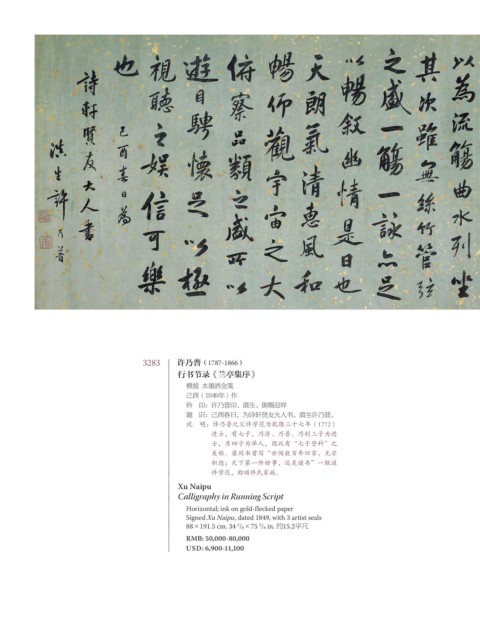 以為流觴曲水列坐
其次雖無絲竹管弦
之盛一觴一詠亦足
以暢敘幽情是日也
天朗氣清惠風和
暢仰觀宇宙之大
俯察品類之盛所以
遊目騁懷足以極
視聽之娛信可樂
也
己酉春日為
詩軒賢友大人書
滇生許乃普
3283
许乃普（1787-1866）
行书节录《兰亭集序》
横披 水墨洒金笺
己酉（1849年）作
钤 印：许乃普印、滇生、
题 识：己酉春日，为诗轩贤友大人书，滇生许乃普。
说 明：许乃普之父许学范为乾隆三十七年（1772）
进士，有七子，乃济、乃普、乃钊三子为进
士，另四子为举人，因此有“七子登科”之
美称。梁同书曾写“世间数百年旧家，无非
积德；天下第一件好事，还是读书”一联送
许学范，称颂许氏家族。
Xu Naipu
Calligraphy in Running Script
Horizontal; ink on gold-flecked paper
Signed Xu Naipu, dated 1849, with 3 artist seals
88×191.5 cm. 34 5/8×75 3/8 in. 约15.2平尺
RMB: 50,000-80,000
USD: 6,900-11,100